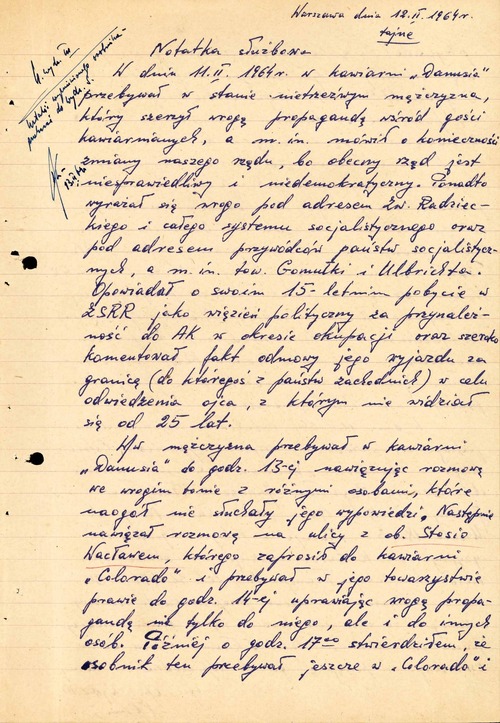 Warszawa dnia 12.II.1964r.
tajne
Notatka służbowa
W dniu 11.II.1964r. w kawiarni „Danusia"
przebywał w stanie nietrzeźwym mężczyzna,
który szerzył wrogą propagandę wśród gości
kawiarnianych, a m.in. mówił o konieczności
zmiany naszego rządu, bo obecny rząd jest
niesprawiedliwy i niedemokratyczny. Ponadto
wyrażał się wrogo pod adresem Zw. Radziec-
kiego i całego systemu socjalistycznego oraz
pod adresem przywódców państw socjalistycz-
nych, a m.in. tow. Gomułki i Ulbrichta.
Opowiadał o swoim 15-letnim pobycie w
ZSRR jako więzień polityczny za przynależ-
ność do AK w okresie okupacji oraz szeroko
komentował fakt odmowy jego wyjazdu za
granicę (do któregoś z państw zachodnich) w celu
odwiedzenia ojca, z którym nie widział
się od 25 lat.
W/w mężczyzna przebywał w kawiarni
„Danusia" do godz. 13-ej nawiązując rozmowę
we wrogim tonie z różnymi osobami, które
naogół nie słuchały jego wypowiedzi. Następnie
nawiązał rozmowę na ulicy z ob. Stosio
Wacławem, którego zaprosił do kawiarni
„Colorado" i przebywał w jego towarzystwie
prawie do godz. 14-ej uprawiając wrogą propa-
gandę nie tylko do niego, ale i do innych
osób. Później o godz. 17⁰⁰ stwierdziłem, że
osobnik ten przebywał jeszcze w „Colorado" i